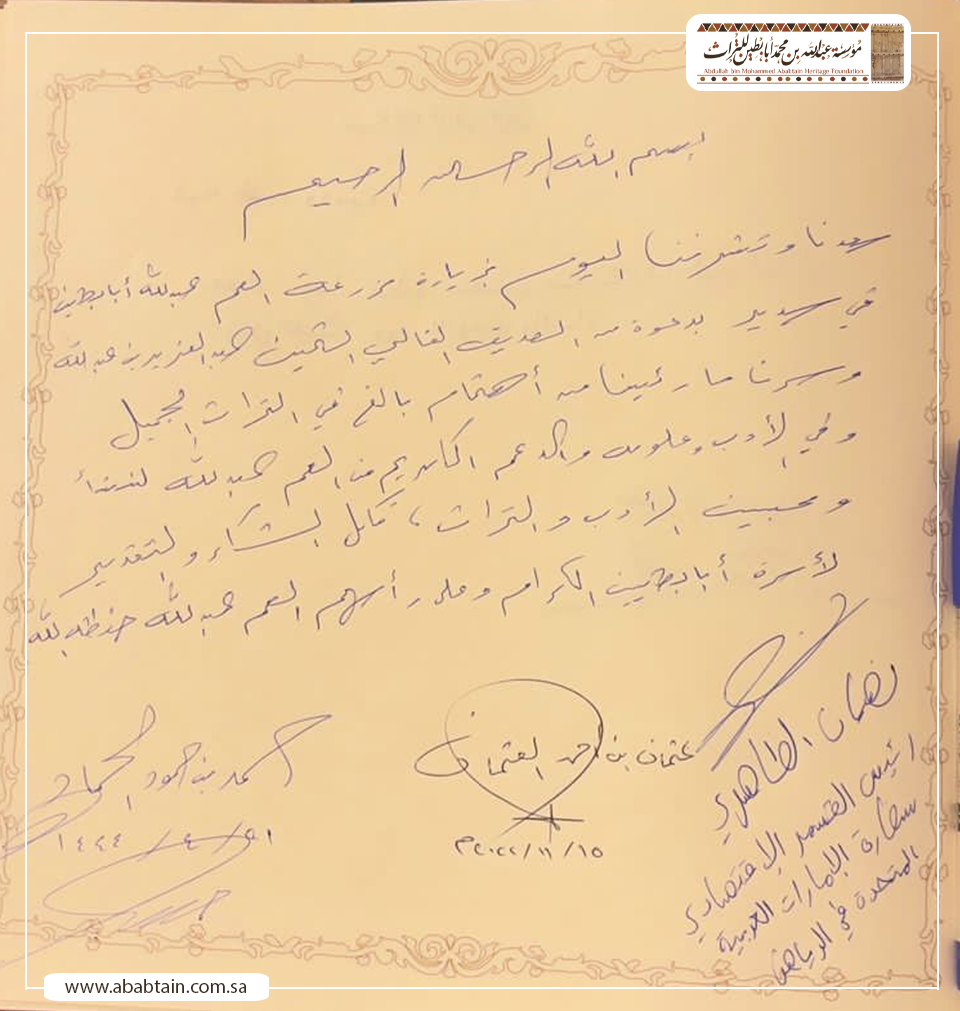 مؤسسة عبدالله بن محمد أبابطين للتراث
Abdullah bin Mohammed Ababtain Heritage Foundation
بسم الله الرحمن الرحيم
سعدنا وتشرفنا اليوم بزيارة مزرعة العم عبدالله أبابطين
في سدير بدعوة من الصديق الغالي الثمين عبدالعزيز بن عبدالله
وسرنا ما رئينا من أهتمام بالغ في التراث الجميل
وفي الأدب وعلومه والدعم الكريم من العم عبدالله
ومحبين الأدب والتراث، كل الشكر والتقدير
لأسرة أبابطين الكرام وعلى رأسهم العم عبدالله حفظه الله
نهيان الظاهري
رئيس القسم الإقتصادي
سفارة الإمارات العربية
المتحدة في الرياض
عثمان بن احمد العثمان
٢٠٢٢/١١/١٥م
حمد بن حمود
١٤٤٤/٤/٢١
www.ababtain.com.sa